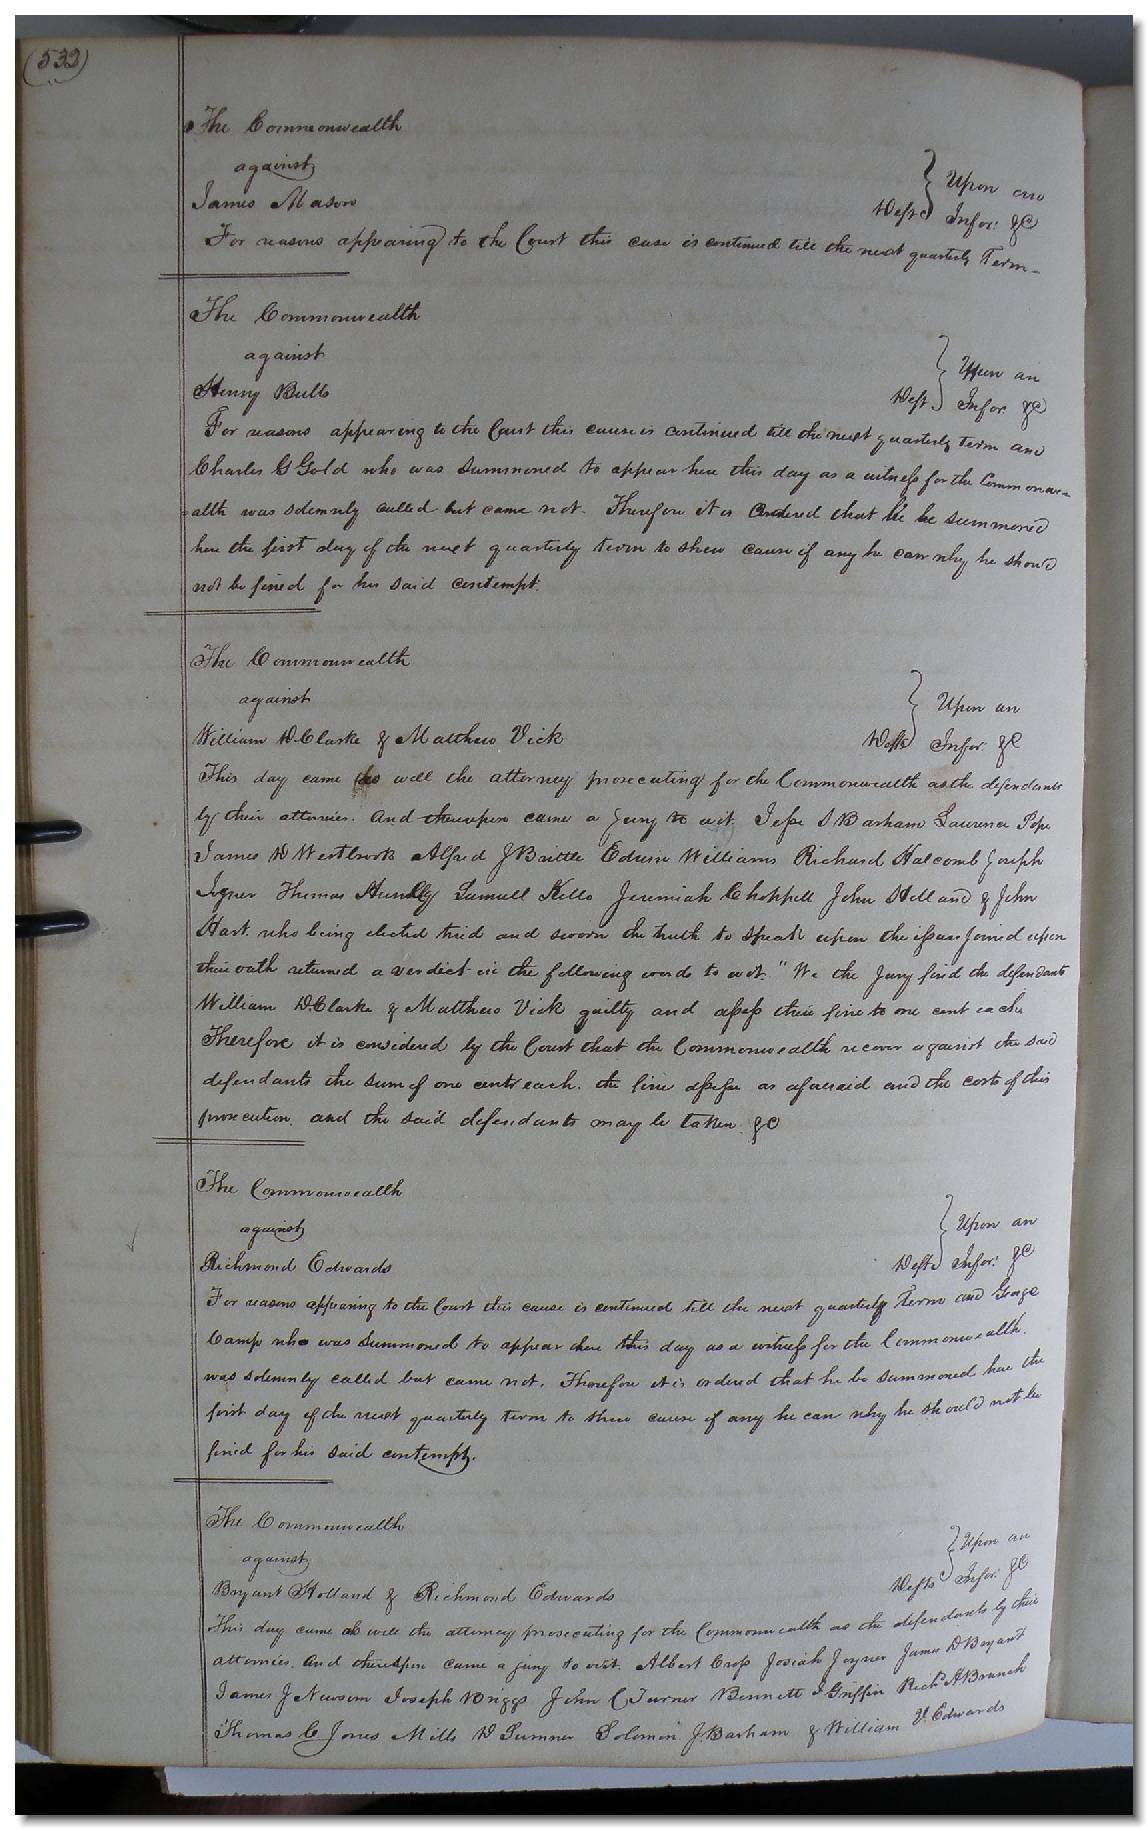 (532)
The Commonwealth
against
James Mason Deft. } Upon an Infor: &C
For reasons appearing to the Court this case is continued till the next quarterly Term-
The Commonwealth
against
Henry Bulls Deft. } Upon an Infor: &C
For reasons appearing to the Court this cause is continued till the next quarterly term and
Charles G Gold who was summoned to appear here this day as a witness for the Commonwe-
=alth was solemnly called but came not. Therefore it is Ordered that he be summoned
here the first day of the next quarterly term to shew cause if any he can why he should
not be fined for his said contempt.
The Commonwealth
against
William D. Clarke & Matthew Vick Defts } Upon an Infor: &C
This day came as well the attorney prosecuting for the Commonwealth as the defendants
by their attornies. And thereupon came a Jury to wit, Jesse S Barham Laurence Pope
James D Westbrook Alfred J Brittle Edwin Williams Richard Halcomb Joseph
Joyner Thomas Hundly Samuell Kello Jeremiah Chappell John Holland & John
Hart. who being elected tried and sworn the truth to speak upon the issue Joined upon
their oath returned a verdict in the following words to wit. "We the Jury find the defendants
William D. Clarke & Matthew Vick guilty and assess their fine to one cent each
Therefore it is considered by the Court that the Commonwealth recover against the said
defendants the sum of one cent each. the fine assesse as aforesaid and the costs of this
prosecution. and the said defendants may be taken. &C
The Commonwealth
against
Richmond Edwards Deft. } Upon an Infor: &C
For reasons appearing to the Court this cause is continued till the next quarterly Term and George
Camp who was summoned to appear here this day as a witness for the Commonwealth.
was solemnly called but came not. Therefore it is ordered that he be summoned here the
first day of the next quarterly term to shew cause if any he can why he should not be
fined for his said contempt.
The Commonwealth
against
Bryant Holland & Richmond Edwards Defts } Upon an Infor: &C
This day came as well the attorney prosecuting for the Commonwealth as the defendants by their
attornies. And thereupon came a jury to wit. Albert Crop Josiah Joyner James D Bryant
James J Newsom Joseph Briggs John C Turner Bennett J Griffin Richd A Branch
Thomas C Jones Mills D Sumner Solomon J Barham & William V. Edwards